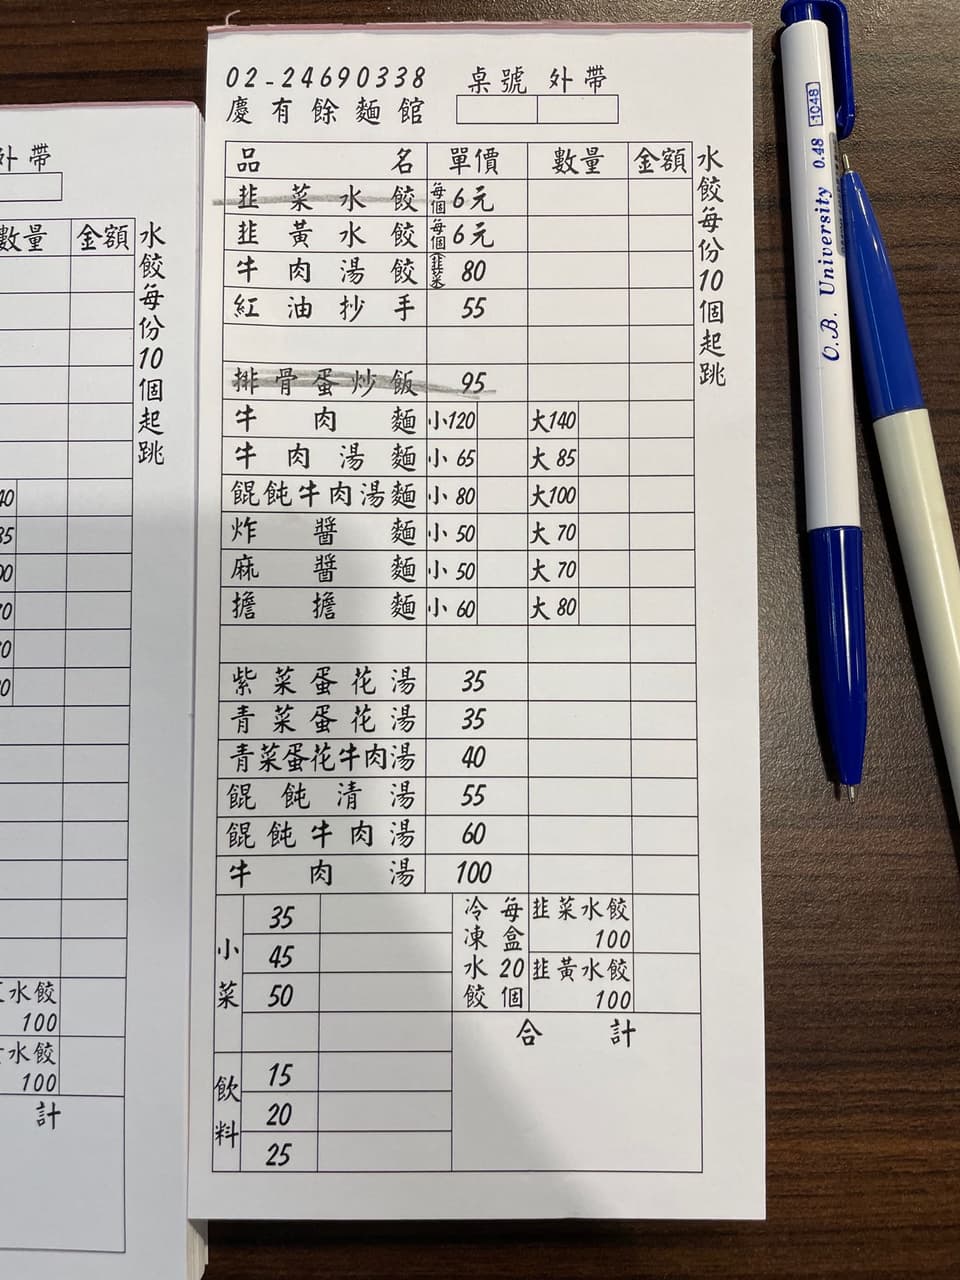 02-24690338 桌號 外帶
慶有餘麵館
品名 單價 數量 金額
韭菜水餃 每個6元
韭黃水餃 每個6元
牛肉湯餃 (韭菜 80
紅油抄手 55
排骨蛋炒飯 95
牛肉麵 小120 大140
牛肉湯麵 小65 大85
餛飩牛肉湯麵 小80 大100
炸醬麵 小50 大70
麻醬麵 小50 大70
擔擔麵 小60 大80
紫菜蛋花湯 35
青菜蛋花湯 35
青菜蛋花牛肉湯 40
餛飩清湯 55
餛飩牛肉湯 60
牛肉湯 100
小菜
35
45
50
飲料
15
20
25
冷凍水餃
每盒20個
韭菜水餃
100
韭黃水餃
100
合計
水餃每份10個起跳
外帶
數量 金額
水餃每份10個起跳
水餃
100
水餃
100
計
O.B. University 0.48 1048